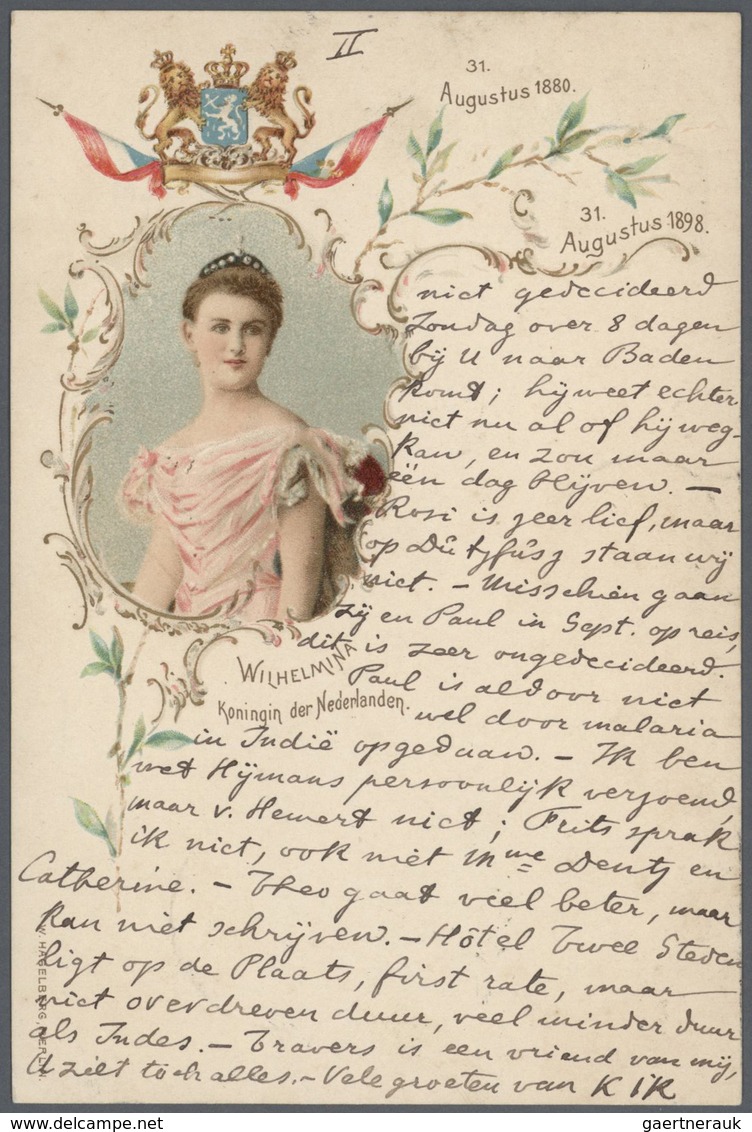 II
31.
Augustus 1880.
31.
Augustus 1898.
niet gedecideerd
Zondag over 8 dagen
bij U naar Baden
komt; hij weet echter
niet nu al of hij weg-
kan, en zou maar
één dag blijven. —
Rosi is zeer lief, maar
op staan wij
niet. — Misschien gaan
zij en Paul in Sept. op reis,
dit is zeer ongedecideerd.
WILHELMINA
Koningin der Nederlanden.
Paul is aldoor niet
wel door malaria
in Indië opgedaan. — Ik ben
met Hijmans persoonlijk verzoend,
maar v. Hemert niet; Frits sprak
ik niet, ook niet Mme Dentz en
Catherine. — Theo gaat veel beter, maar
kan niet schrijven. — Hôtel Twee Steden
ligt op de Plaats, first rate, maar
niet overdreven duur, veel minder duur
als Indes. — Travers is een vriend van mij,
U ziet toch alles. — Vele groeten van Kik
W. HAGELBERG, BERLIN.
gaertnerauk